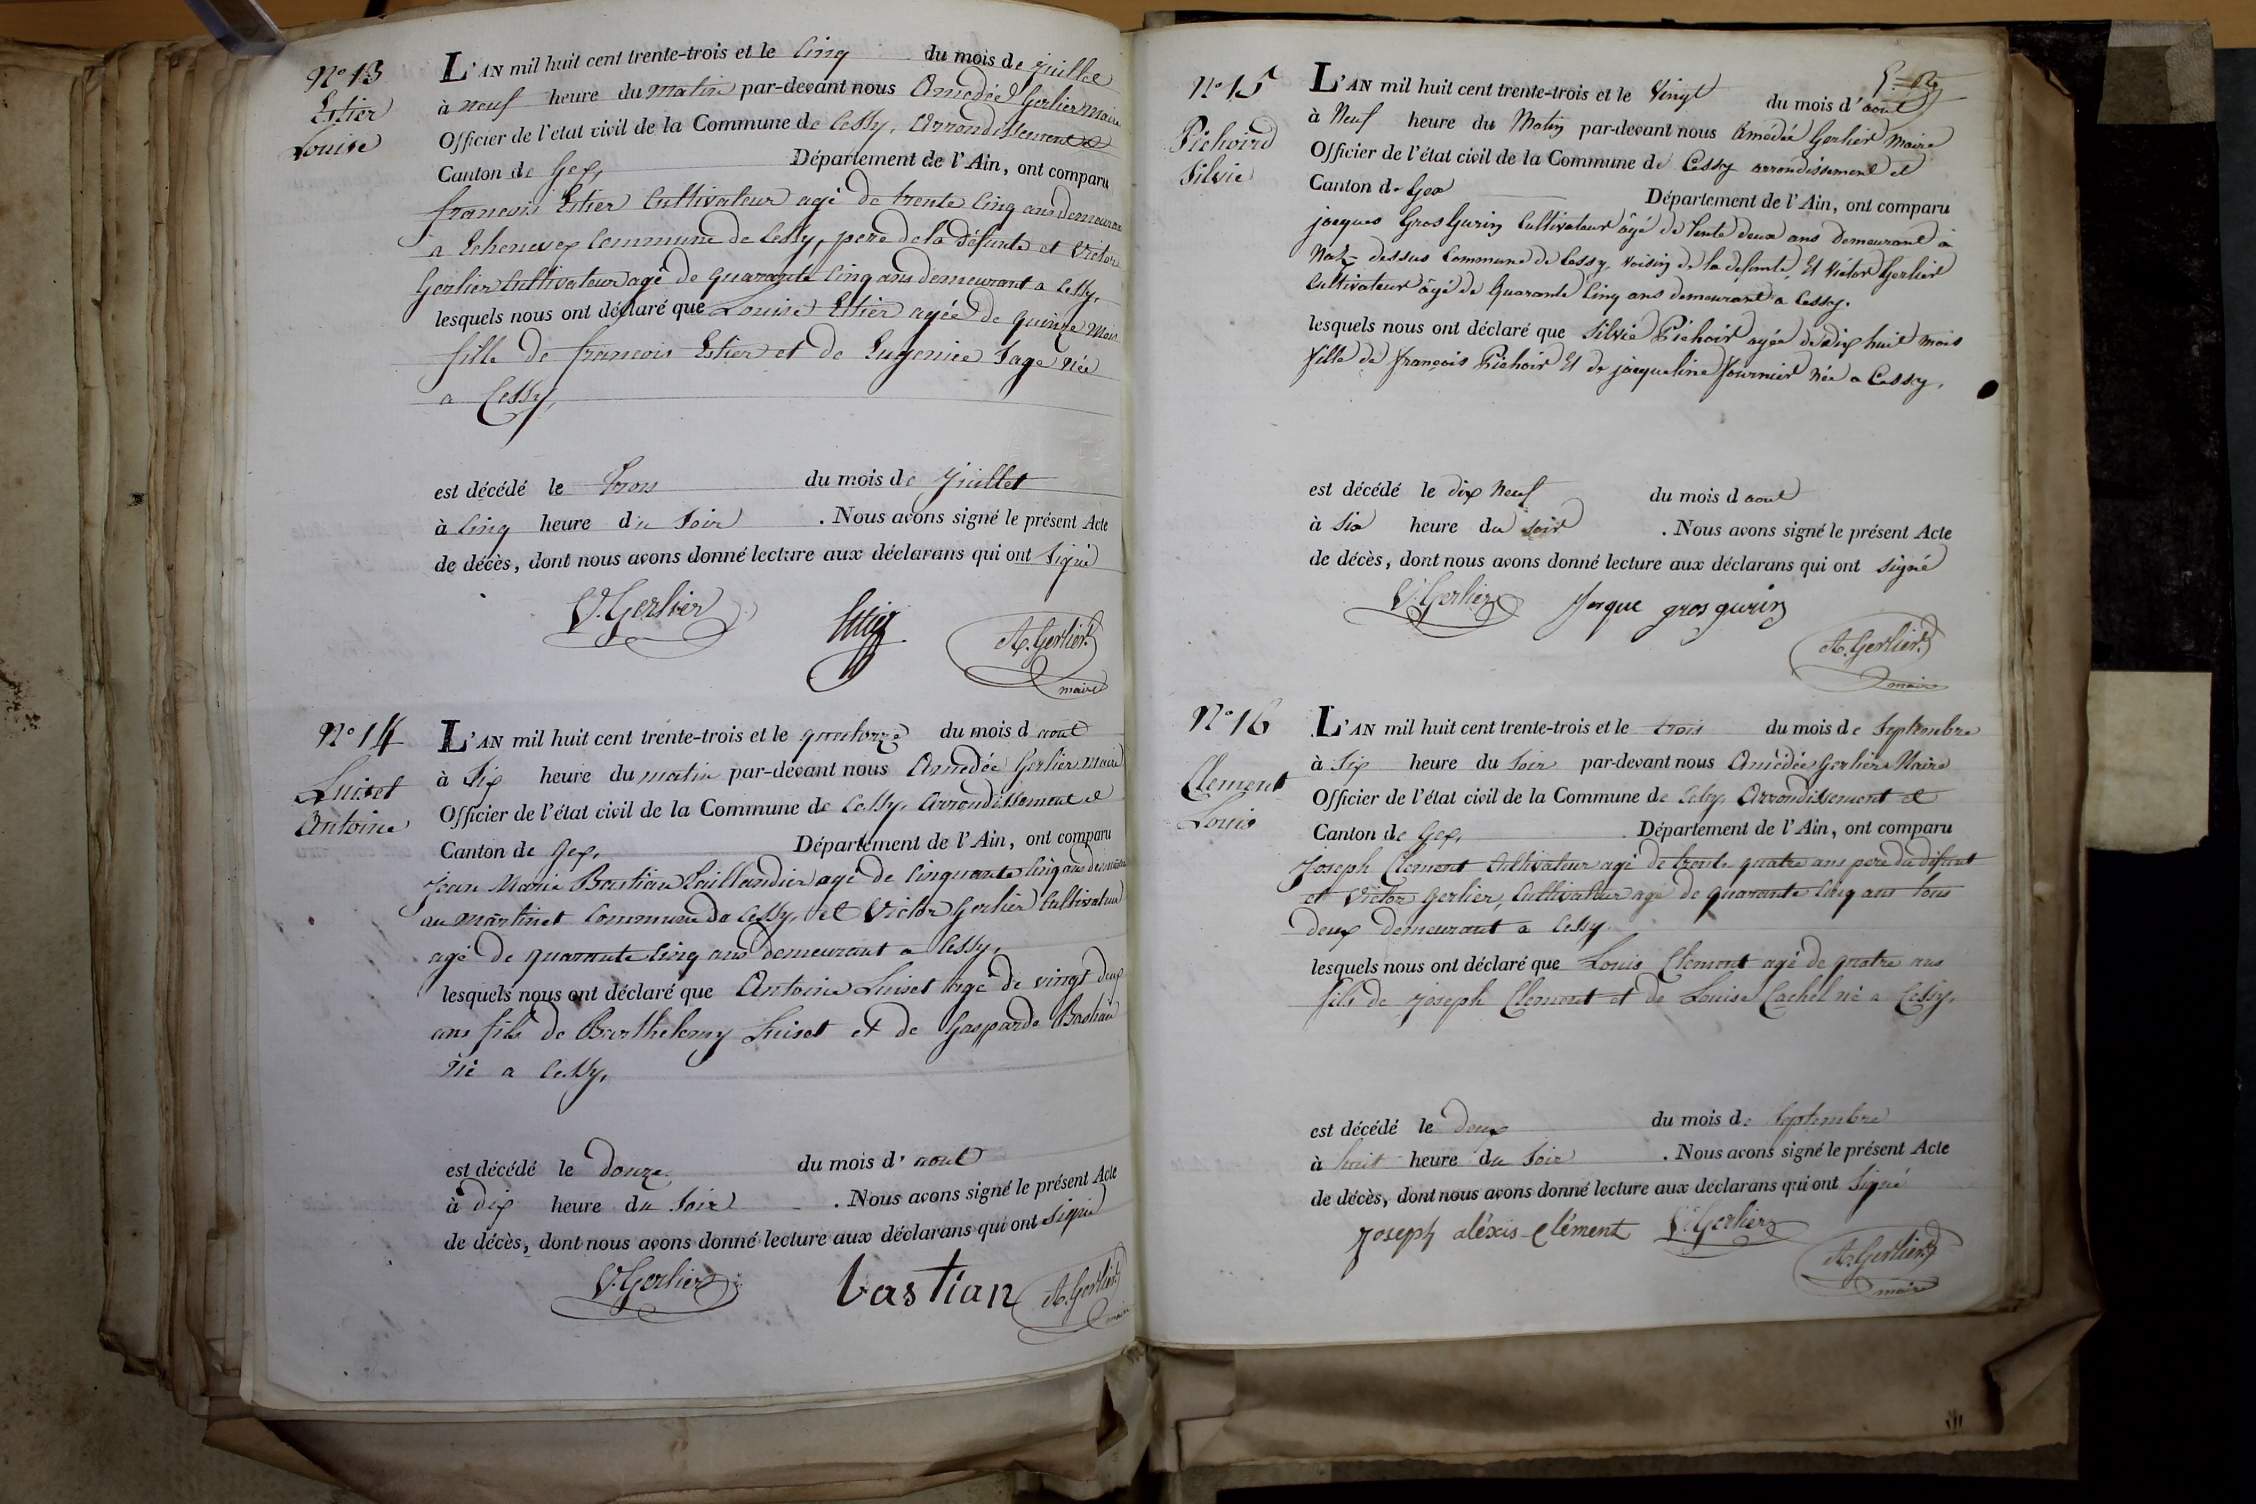 N° 13
Estier
Louise
L'AN mil huit cent trente-trois et le Cinq du mois de juillet
à neuf heure du matin par-devant nous Amédée Gerlier maire
Officier de l'état civil de la Commune de Cessy, Arrondissement et
Canton de Gex, Département de l'Ain, ont comparu
francois Estier Cultivateur agé de trente Cinq ans demeurant
a Echenevex Commune de Cessy, pere de la défunte et Victor
Gerlier Cultivateur agé de quarante Cinq ans demeurant a Cessy,
lesquels nous ont déclaré que Louise Estier agée de quinze Mois
fille de francois Estier et de Eugenie Sage née
a Cessy,
est décédé le trois du mois de juillet
à Cinq heure du Soir . Nous avons signé le présent Acte
de décès, dont nous avons donné lecture aux déclarans qui ont Signé
V. Gerlier Estier A. Gerlier
maire
N° 14
Luiset
Antoine
L'AN mil huit cent trente-trois et le quatorze du mois d aout
à Six heure du matin par-devant nous Amédée Gerlier maire
Officier de l'état civil de la Commune de Cessy, Arrondissement et
Canton de Gex, Département de l'Ain, ont comparu
Jean Marie Bastian taillandier agé de Cinquante Cinq ans demeurant
au martinet Commune de Cessy, et Victor Gerlier Cultivateur
agé de quarante Cinq ans demeurant a Cessy,
lesquels nous ont déclaré que Antoine Luiset agé de vingt deux
ans fils de Barthelemy Luiset et de Gasparde Bastian
né a Cessy,
est décédé le douze du mois d' aout
à dix heure du Soir . Nous avons signé le présent Acte
de décès, dont nous avons donné lecture aux déclarans qui ont Signé
V. Gerlier bastian A. Gerlier
maire
N° 15
Pichoird
Silvie
L'AN mil huit cent trente-trois et le Vingt du mois d'aout
à Neuf heure du Matin par-devant nous Amédée Gerlier Maire
Officier de l'état civil de la Commune de Cessy arrondissement et
Canton de Gex Département de l'Ain, ont comparu
jacques GrosGurin Cultivateur âgé de trente deux ans demeurant à
dessus Commune de Cessy, voisin de la defunte, Et Victor Gerlier
Cultivateur âgé de Quarante Cinq ans demeurant a Cessy.
lesquels nous ont déclaré que Silvie Pichoir agée de dix huit mois
fille de françois Pichoir Et de jacqueline fournier née a Cessy,
est décédé le dix Neuf du mois d aout
à Six heure du soir . Nous avons signé le présent Acte
de décès, dont nous avons donné lecture aux déclarans qui ont signé
V. Gerlier Jaque gros gurin
A. Gerlier
maire
N° 16
Clement
Louis
L'AN mil huit cent trente-trois et le trois du mois de Septembre
à Six heure du Soir par-devant nous Amédée Gerlier Maire
Officier de l'état civil de la Commune de Cessy, Arrondissement et
Canton de Gex, Département de l'Ain, ont comparu
Joseph Clement Cultivateur agé de trente quatre ans pere du défunt
et Victor Gerlier, Cultivateur agé de quarante Cinq ans tous
deux demeurant a Cessy
lesquels nous ont déclaré que Louis Clement agé de quatre ans
fils de Joseph Clement et de Louise Cachel né a Cessy,
est décédé le deux du mois de Septembre
à huit heure du Soir . Nous avons signé le présent Acte
de décès, dont nous avons donné lecture aux déclarans qui ont Signé
Joseph aléxis clément V. Gerlier
A. Gerlier
maire